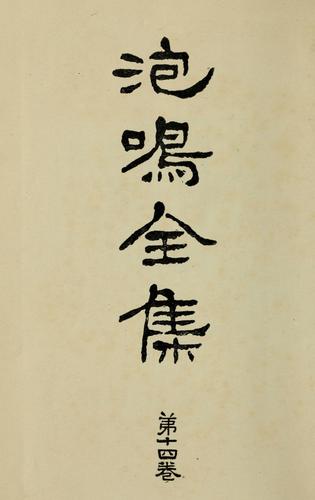 泡鳴全集
第十四卷